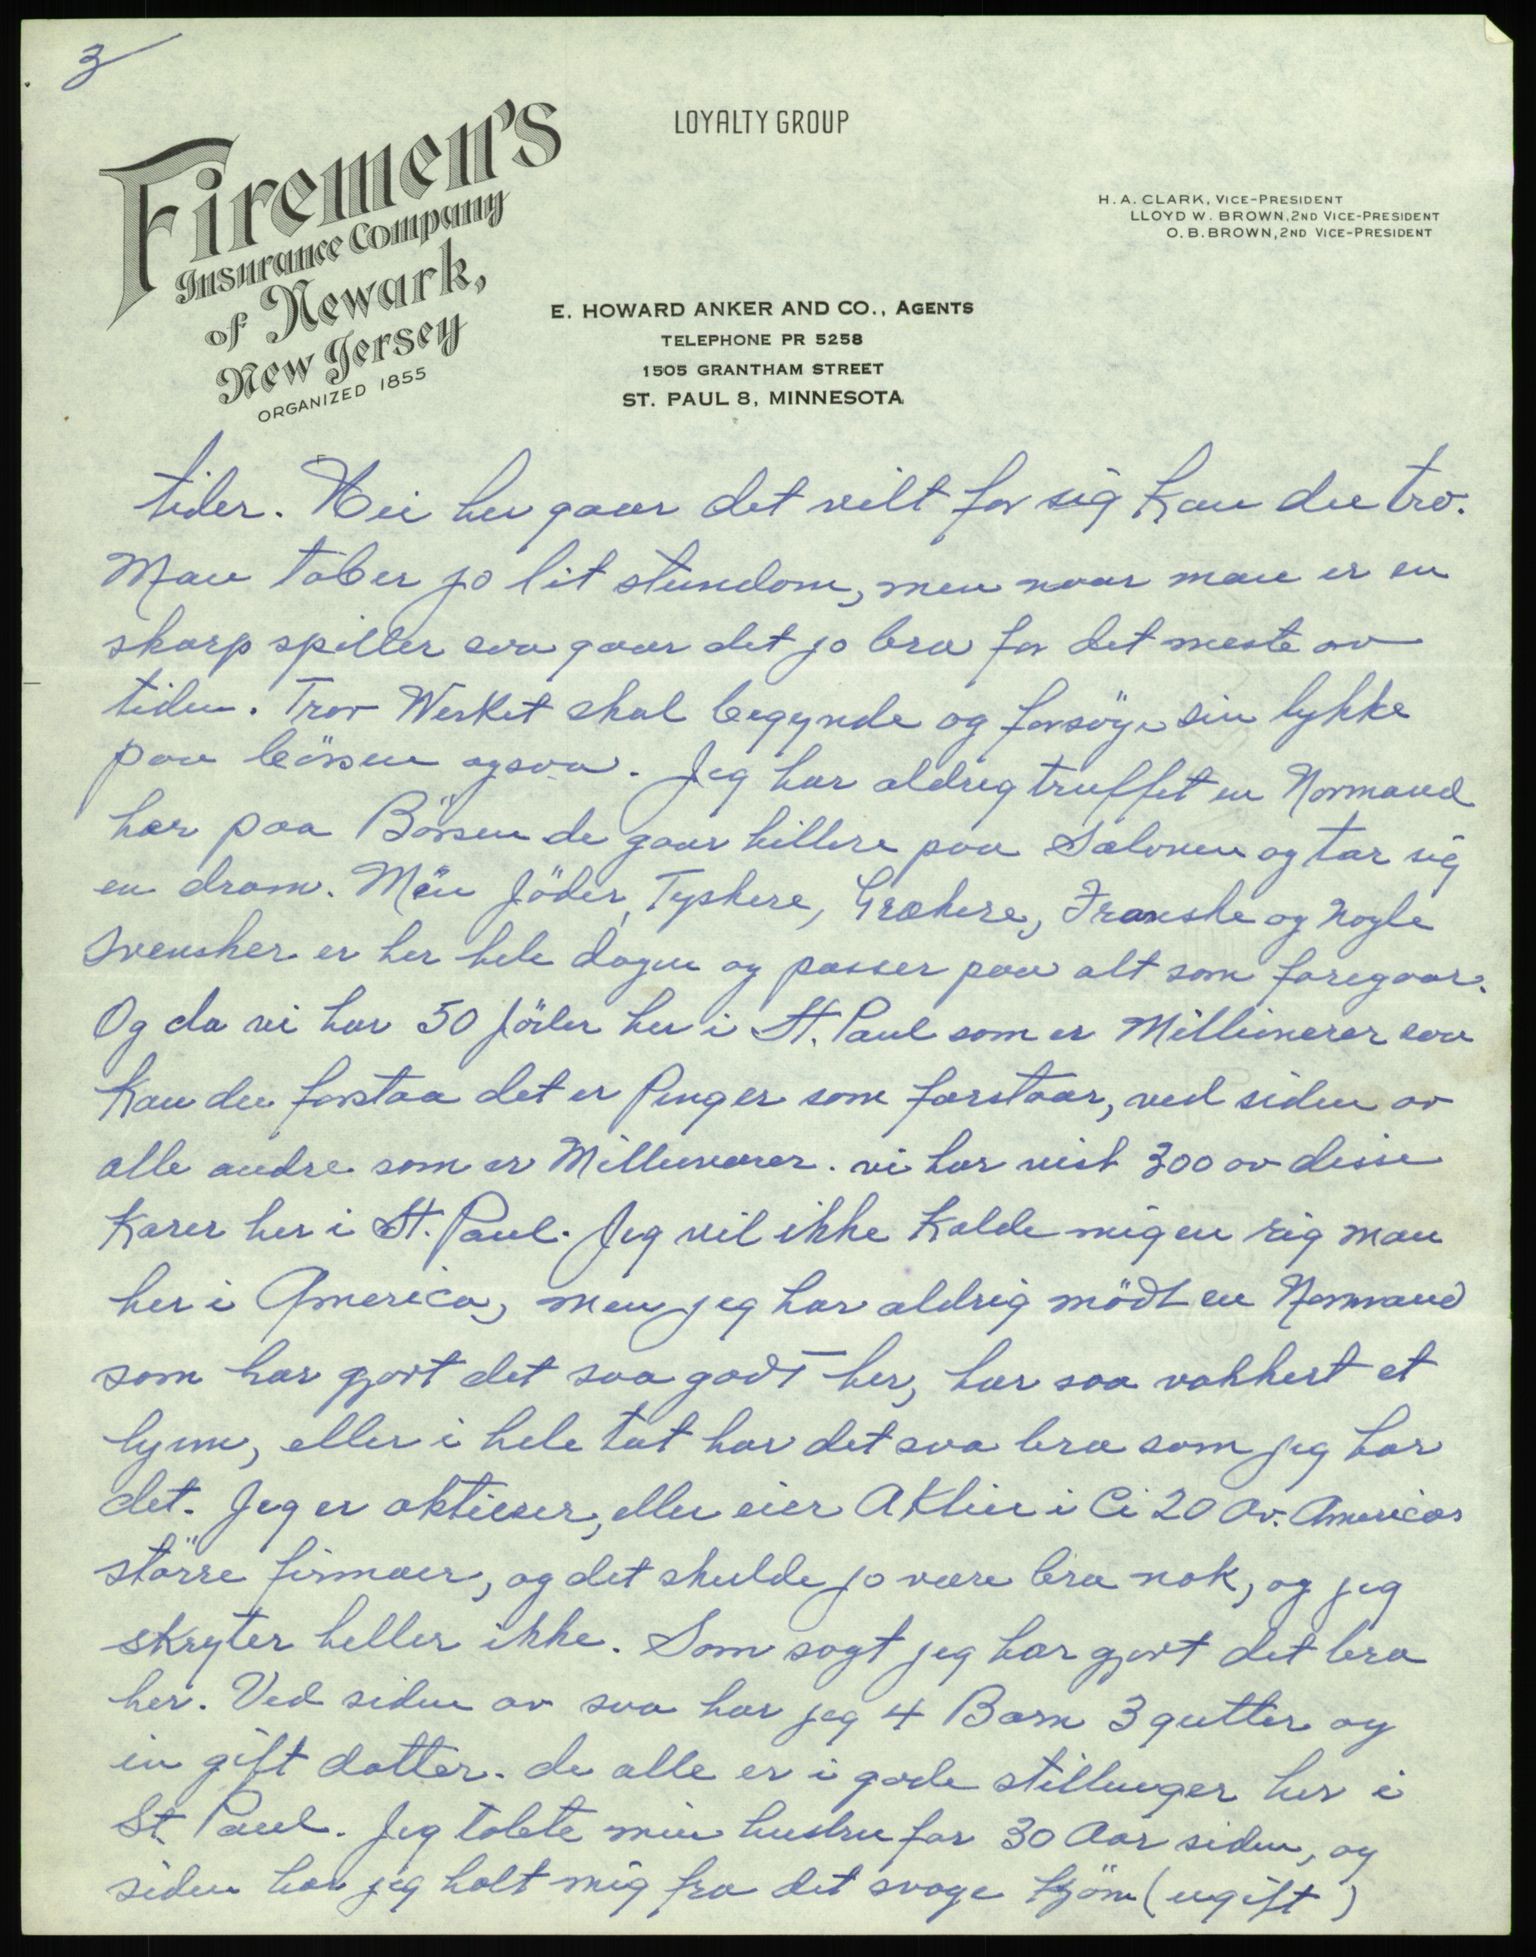 3
LOYALTY GROUP
Firemen's
Insurance Company
of Newark,
New Jersey
ORGANIZED 1855
H. A. CLARK, VICE-PRESIDENT
LLOYD W. BROWN, 2ND VICE-PRESIDENT
O. B. BROWN, 2ND VICE-PRESIDENT
E. HOWARD ANKER AND CO., AGENTS
TELEPHONE PR 5258
1505 GRANTHAM STREET
ST. PAUL 8, MINNESOTA
tider. Nei her gaar det vilt for sig kan du tro.
Man taber jo lit stundom, men naar man er en
skarp spiller saa gaar det jo bra for det meste av
tiden. Tror Verket skal begynde og forsöge sin lykke
paa börsen ogsaa. Jeg har aldrig truffet en Normand
her paa Börsen de gaar hellere paa Salonen og tar sig
en dram. Men Jöder, Tyskere, Grækere, Franske og nogle
svensker er her hele dagen og passer paa alt som foregaar.
Og da vi har 50 Jöder her i St. Paul som er Millionerer saa
kan du forstaa det er Penger som forstaar, ved siden av
alle andre som er Millionerer. vi har vist 300 av disse
Karer her i St. Paul. Jeg vil ikke kalde mig en rig man
her i America, men jeg har aldrig mödt en Normand
som har gjort det saa godt her, har saa vakkert et
hjem, eller i hele tat har det saa bra som jeg har
det. Jeg er aktieeier, eller eier Aktier i Ci 20 Av. Americas
större firmaer, og det skulde jo være bra nok, og jeg
skryter heller ikke. Som sagt jeg har gjort det bra
her. Ved siden av saa har jeg 4 Barn 3 gutter og
en gift datter. de alle er i gode stillinger her i
St. Paul. Jeg tabte min hustru for 30 Aar siden, og
siden har jeg holt mig fra det svage kjöm (ugift)